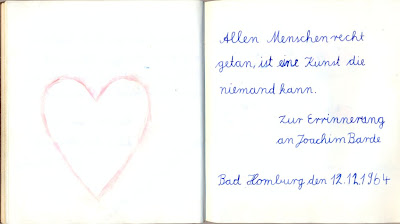 Allen Menschen recht
getan, ist eine Kunst die
niemand kann.
Zur Errinnerung
an Joachim Barde
Bad Homburg den 12.12.1964